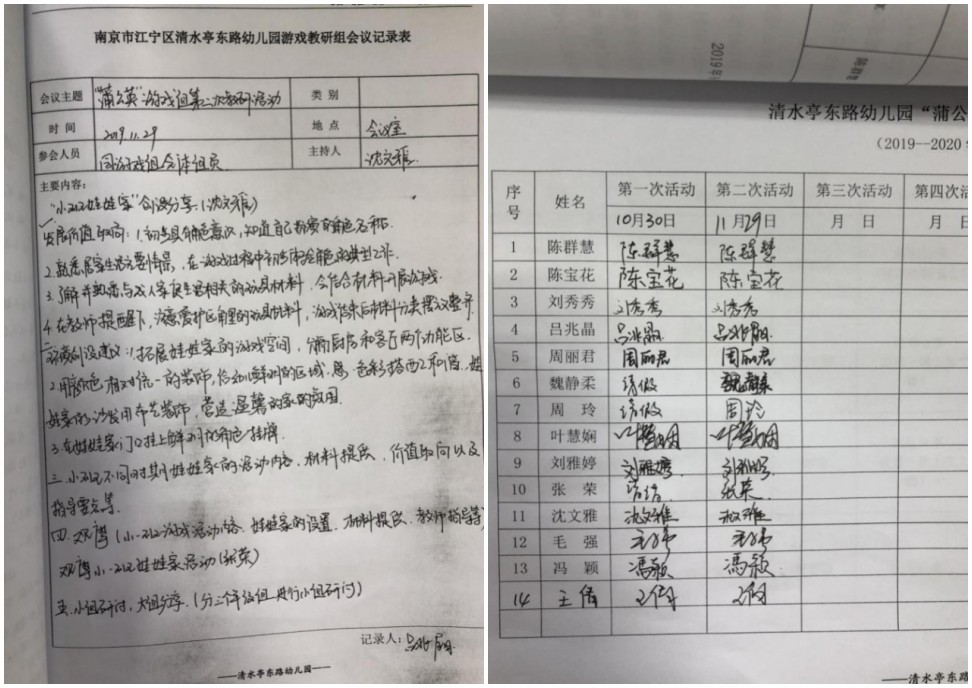 南京市江宁区清水亭东路幼儿园游戏教研组会议记录表
会议主题 "蒲公英"游戏组第二次教研活动 类别
时间 2019.11.29 地点 会议室
参会人员 园游戏组全体组员 主持人 沈文雅
主要内容:
"小班娃娃家"创设分享:(沈文雅)
发展价值取向:1.初步具有角色意识,知道自己扮演的角色名称.
2.熟悉居家生活主要情景,在游戏过程中的典型工作.
3.了解并熟悉与成人家庭生活相关的玩具材料,会结合材料开展游戏.
4.在教师提醒下,注意爱护区角里的玩具材料,游戏结束后将材料分类摆放整齐.
二.环境创设建议:1.拓展娃娃家的游戏空间,分隔厨房和客厅两个功能区.
2.用颜色相对统一的装饰,给幼儿鲜明的区域感,色彩搭配和谐,娃
娃家的沙发用布艺装饰,营造温馨的家的氛围.
3.在娃娃家门口挂上鲜明的角色挂牌.
三.小班不同时期娃娃家的活动内容、材料提供、价值取向以及
指导要点等.
四.观摩(小班游戏活动内容、娃娃家的设置、材料提供、教师指导等)
观摩小班娃娃家活动(张荣)
五.小组研讨,大组分享.(分三个年级组进行小组研讨)
记录人:吕兆晶
——清水亭东路幼儿园——
2019年
清水亭东路幼儿园"蒲公
(2019--2020
序号 姓名 第一次活动 第二次活动 第三次活动 第四次活
10月30日 11月29日 月 日 月 日
1 陈群慧 陈群慧 陈群慧
2 陈宝花 陈宝花 陈宝花
3 刘秀秀 刘秀秀 刘秀秀
4 吕兆晶 吕兆晶 吕兆晶
5 周丽君 周丽君 周丽君
6 魏静柔 请假 魏静柔
7 周玲 请假 周玲
8 叶慧娴 叶慧娴 叶慧娴
9 刘雅婷 刘雅婷 刘雅婷
10 张荣 张荣
11 沈文雅 沈文雅 沈文雅
12 毛强 毛强 毛强
13 冯颖 冯颖 冯颖
14 王倩 王倩 王倩
——清水亭东路